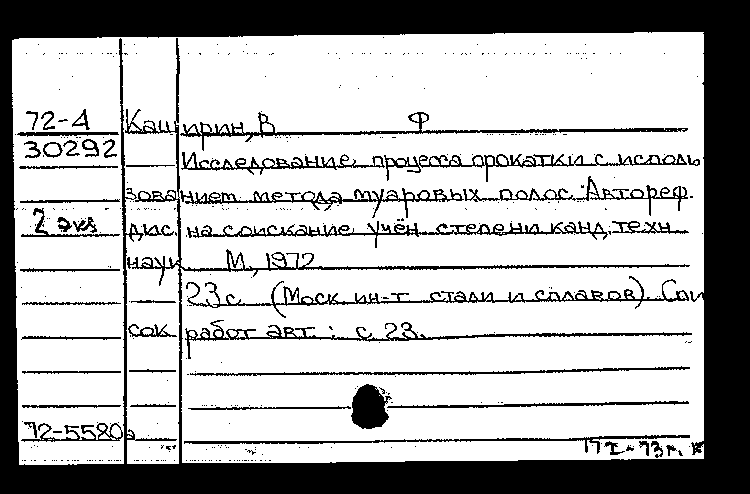 72-4 Каширин, В Ф
30292 Исследование процесса прокатки с исполь
зованием метода муаровых полос. Автореф.
2 экз дис. на соискание учён. степени канд. техн
наук М., 1972.
23с (Моск. ин-т стали и сплавов). Спи
сок работ авт.: с. 23.
72-5580
17 I-73г.